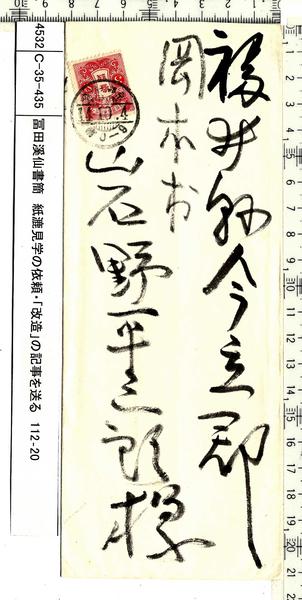 福井縣今立郡
岡本村
岩野平三郎様
4532 C-35-435 冨田溪仙書簡 紙漉見学の依頼・「改造」の記事を送る 112-20